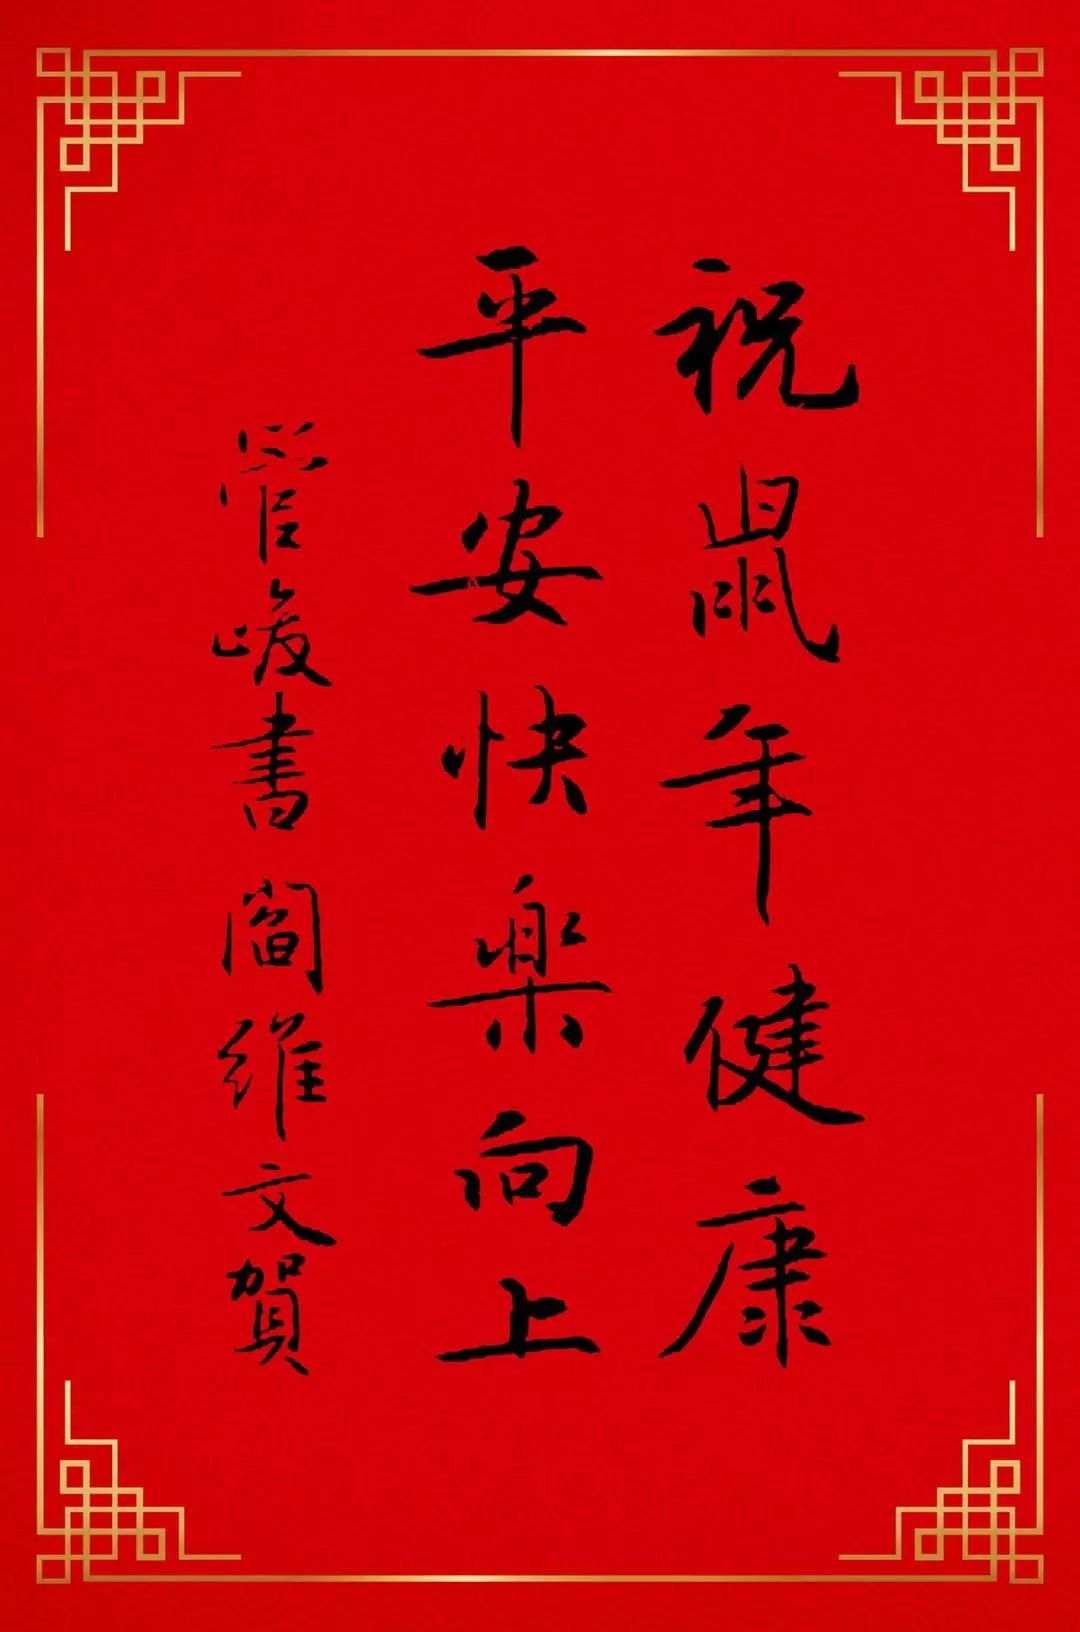 祝鼠年健康
平安快樂向上
管峻書 閻維文賀